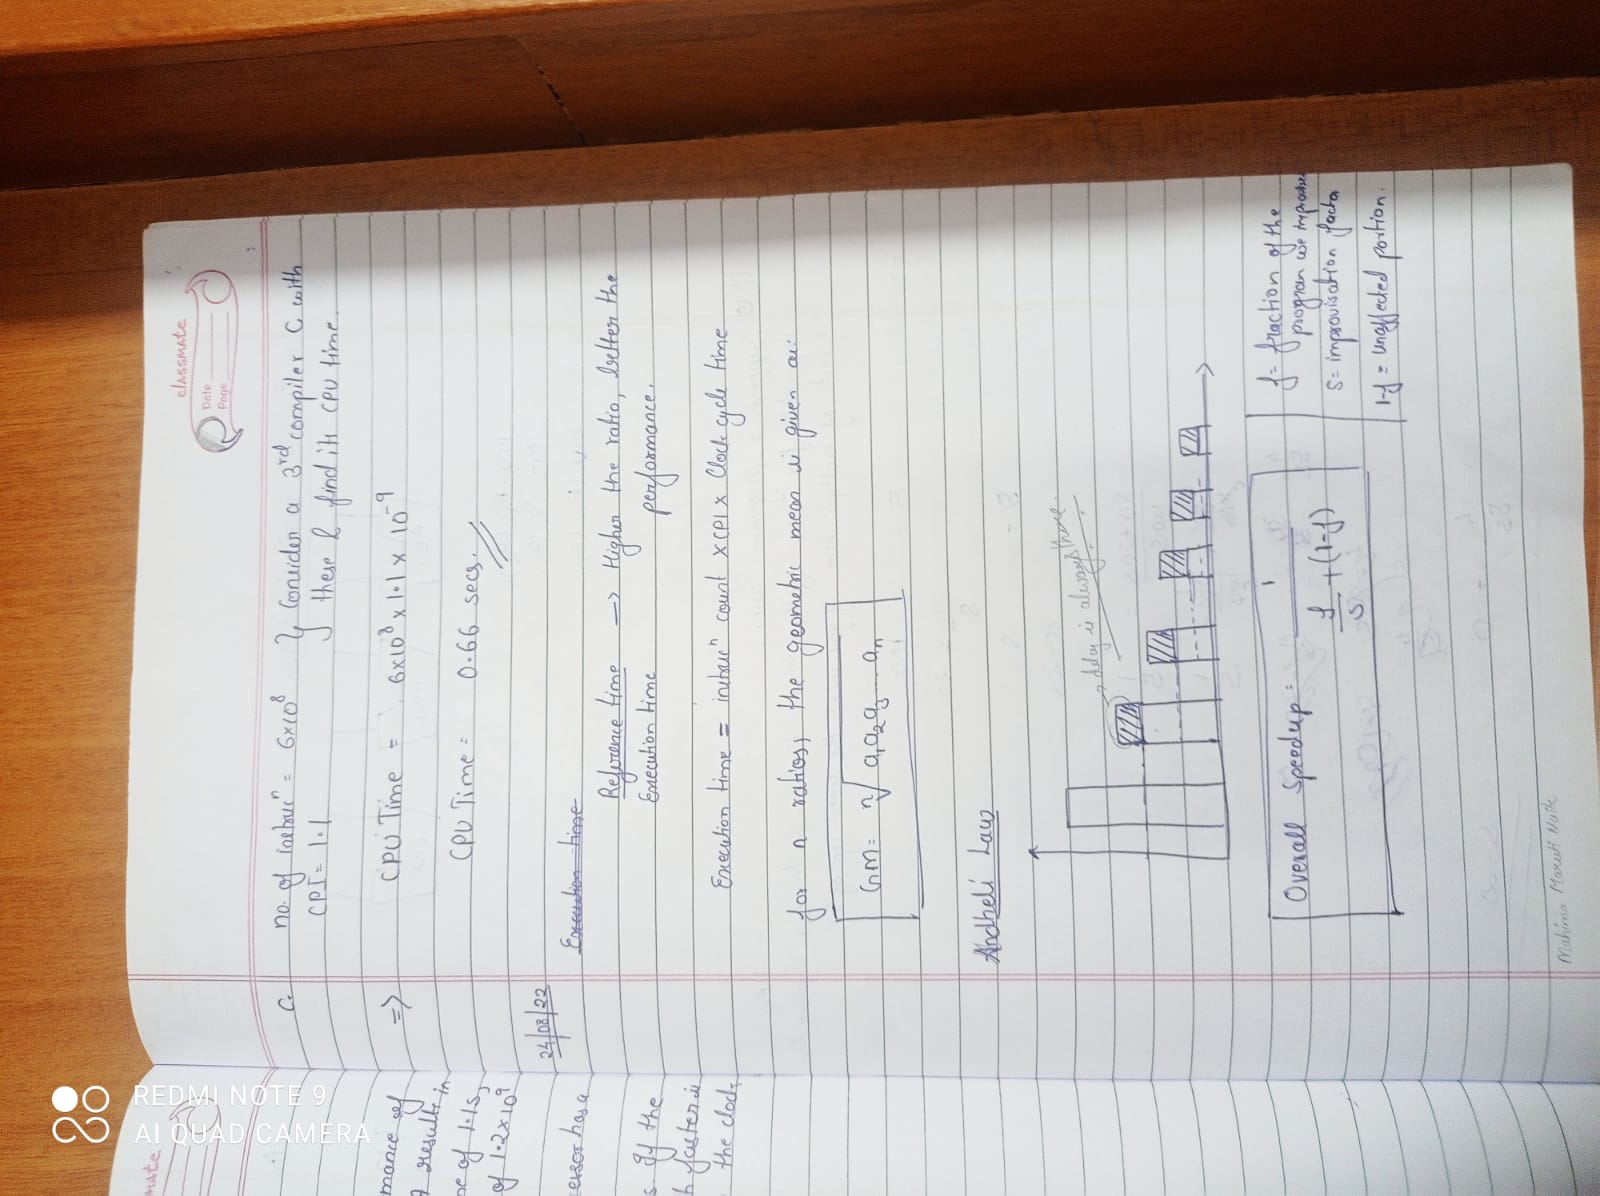 classmate
Date
Page
C. no. of instrucⁿ = 6x10⁸ } Consider a 3rd compiler C with
CPI = 1.1 these & find its CPU time.
=> CPU Time = 6x10⁸ x 1.1 x 10⁻⁹
CPU Time = 0.66 secs.
24/08/22
Execution time
Reference time → Higher the ratio, better the
Execution time performance.
Execution time = instrucⁿ count x CPI x Clock cycle time
for n ratios, the geometric mean is given as:
GM = ⁿ√a₁a₂a₃....aₙ
Andheli Law
→ delay is always there.
Overall Speedup = 1
f/S + (1-f)
f = fraction of the
program we improvise
S = improvisation factor
1-f = unaffected portion.
Mahima Maruti Naik
mate
mance of
result in
me of 1.1s,
of 1.2x10⁹
essor has a
s. If the
h faster is
the clock
REDMI NOTE 9
AI QUAD CAMERA